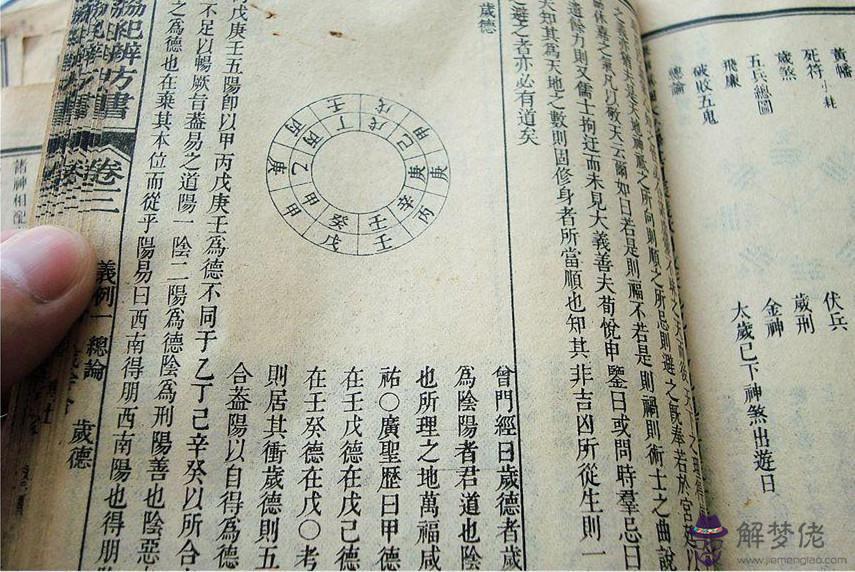 黃幡
伏兵
死符 小耗
歲刑
歲煞
金神
五兵總圖
太歲已下神煞出遊日
飛廉
破敗五鬼
總論
之義亦猶夫是天地神祇之所向則順之所忌則避之旣奉若於宮
休嘉之氣凡以敬天云爾如曰若是則福不若是則禍則術士之曲說
遺餘力則又儒士拘迂而未見大義善夫荀悅申鑒曰或問時羣忌曰
天知其為天地之數則固修身者所當順也知其非吉凶所從生則一
之避之者亦必有道矣
歲德
戊甲庚丙壬戊甲庚丙壬
戊己庚辛壬癸甲乙丙丁
曾門經曰歲德者歲
為陰陽者君道也陰
也所理之地萬福咸
祐〇廣聖歷曰甲德
在壬戊德在戊己德
在壬癸德在戊〇考
則居其衝歲德則五
合葢陽以自得為德
丙戊庚壬五陽卽以甲丙戊庚壬為德不同于乙丁己辛癸以所合
不足以暢厥旨葢易之道陽一陰二陽為德陰為刑陽善也陰惡
之為德也在乗其本位而從乎陽易曰西南得朋西南陽也得朋
協紀辨方書 卷三 義例一 總論 歲德
諸神相配
解梦佬
www.jiemenglao.com